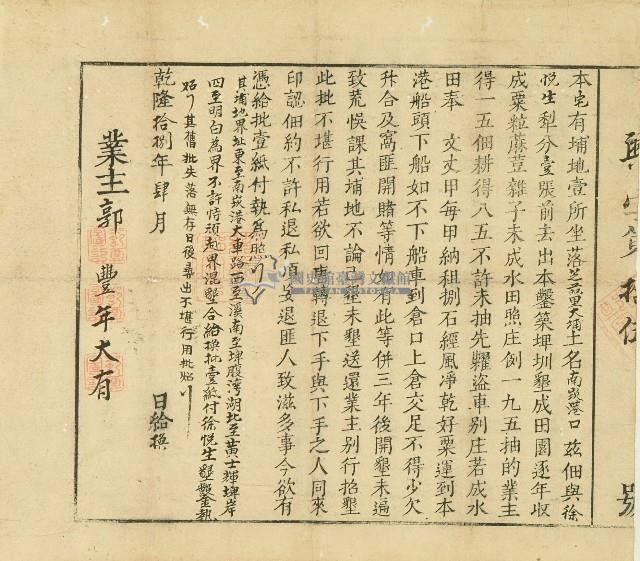 本宅有埔地壹所坐落芝芭里大埔土名南崁港口茲佃與徐
悅生犁分壹張前去出本鑿築埤圳墾成田園逐年収
成粟粒蔴荳雜子未成水田照庄例一九五抽的業主
得一五佃耕得八五不許未抽先糶盜車別庄若成水
田奉文丈甲每甲納租捌石經風凈乾好粟運到本
港船頭下船如不下船車到倉口上倉交足不得少欠
升合及窩匪開賭等情有此等併三年後開墾未遍
致荒悞課其埔地不論已墾未墾送還業主別行招墾
此批不堪行用若欲回唐轉退下手與下手之人同來
印認佃約不許私退私頂妄退匪人致滋多事今欲有
憑給批壹紙付執為炤
其埔地界址東至南崁港大車路西至溪南至埤腹湾湖北至黄士輝埤岸
四至明白為界不許恃頑越界混墾合給換批壹紙付徐悅生墾鑿執
炤 其舊批失落無存日後尋出不堪行用批炤
乾隆拾捌年肆月 日給換
業主郭 豐年大有
號
國史館臺灣文獻館
TAIWAN HISTORICA